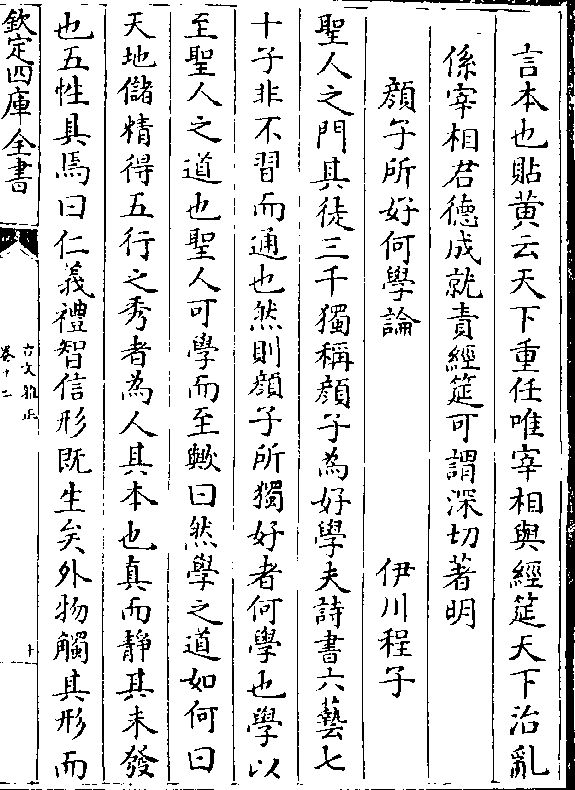 言本也貼黄云天下重任唯宰相與經筵天下治亂
係宰相君德成就責經筵可謂深切著明
顔子所好何學論　伊川程子
聖人之門其徒三千獨稱顔子為好學夫詩書六藝七
十子非不習而通也然則顔子所獨好者何學也學以
至聖人之道也聖人可學而至歟曰然學之道如何曰
天地儲精得五行之秀者為人其本也真而靜其未發
也五性具焉曰仁義禮智信形既生矣外物觸其形而
欽定四庫全書
古文雅正
卷十二
十